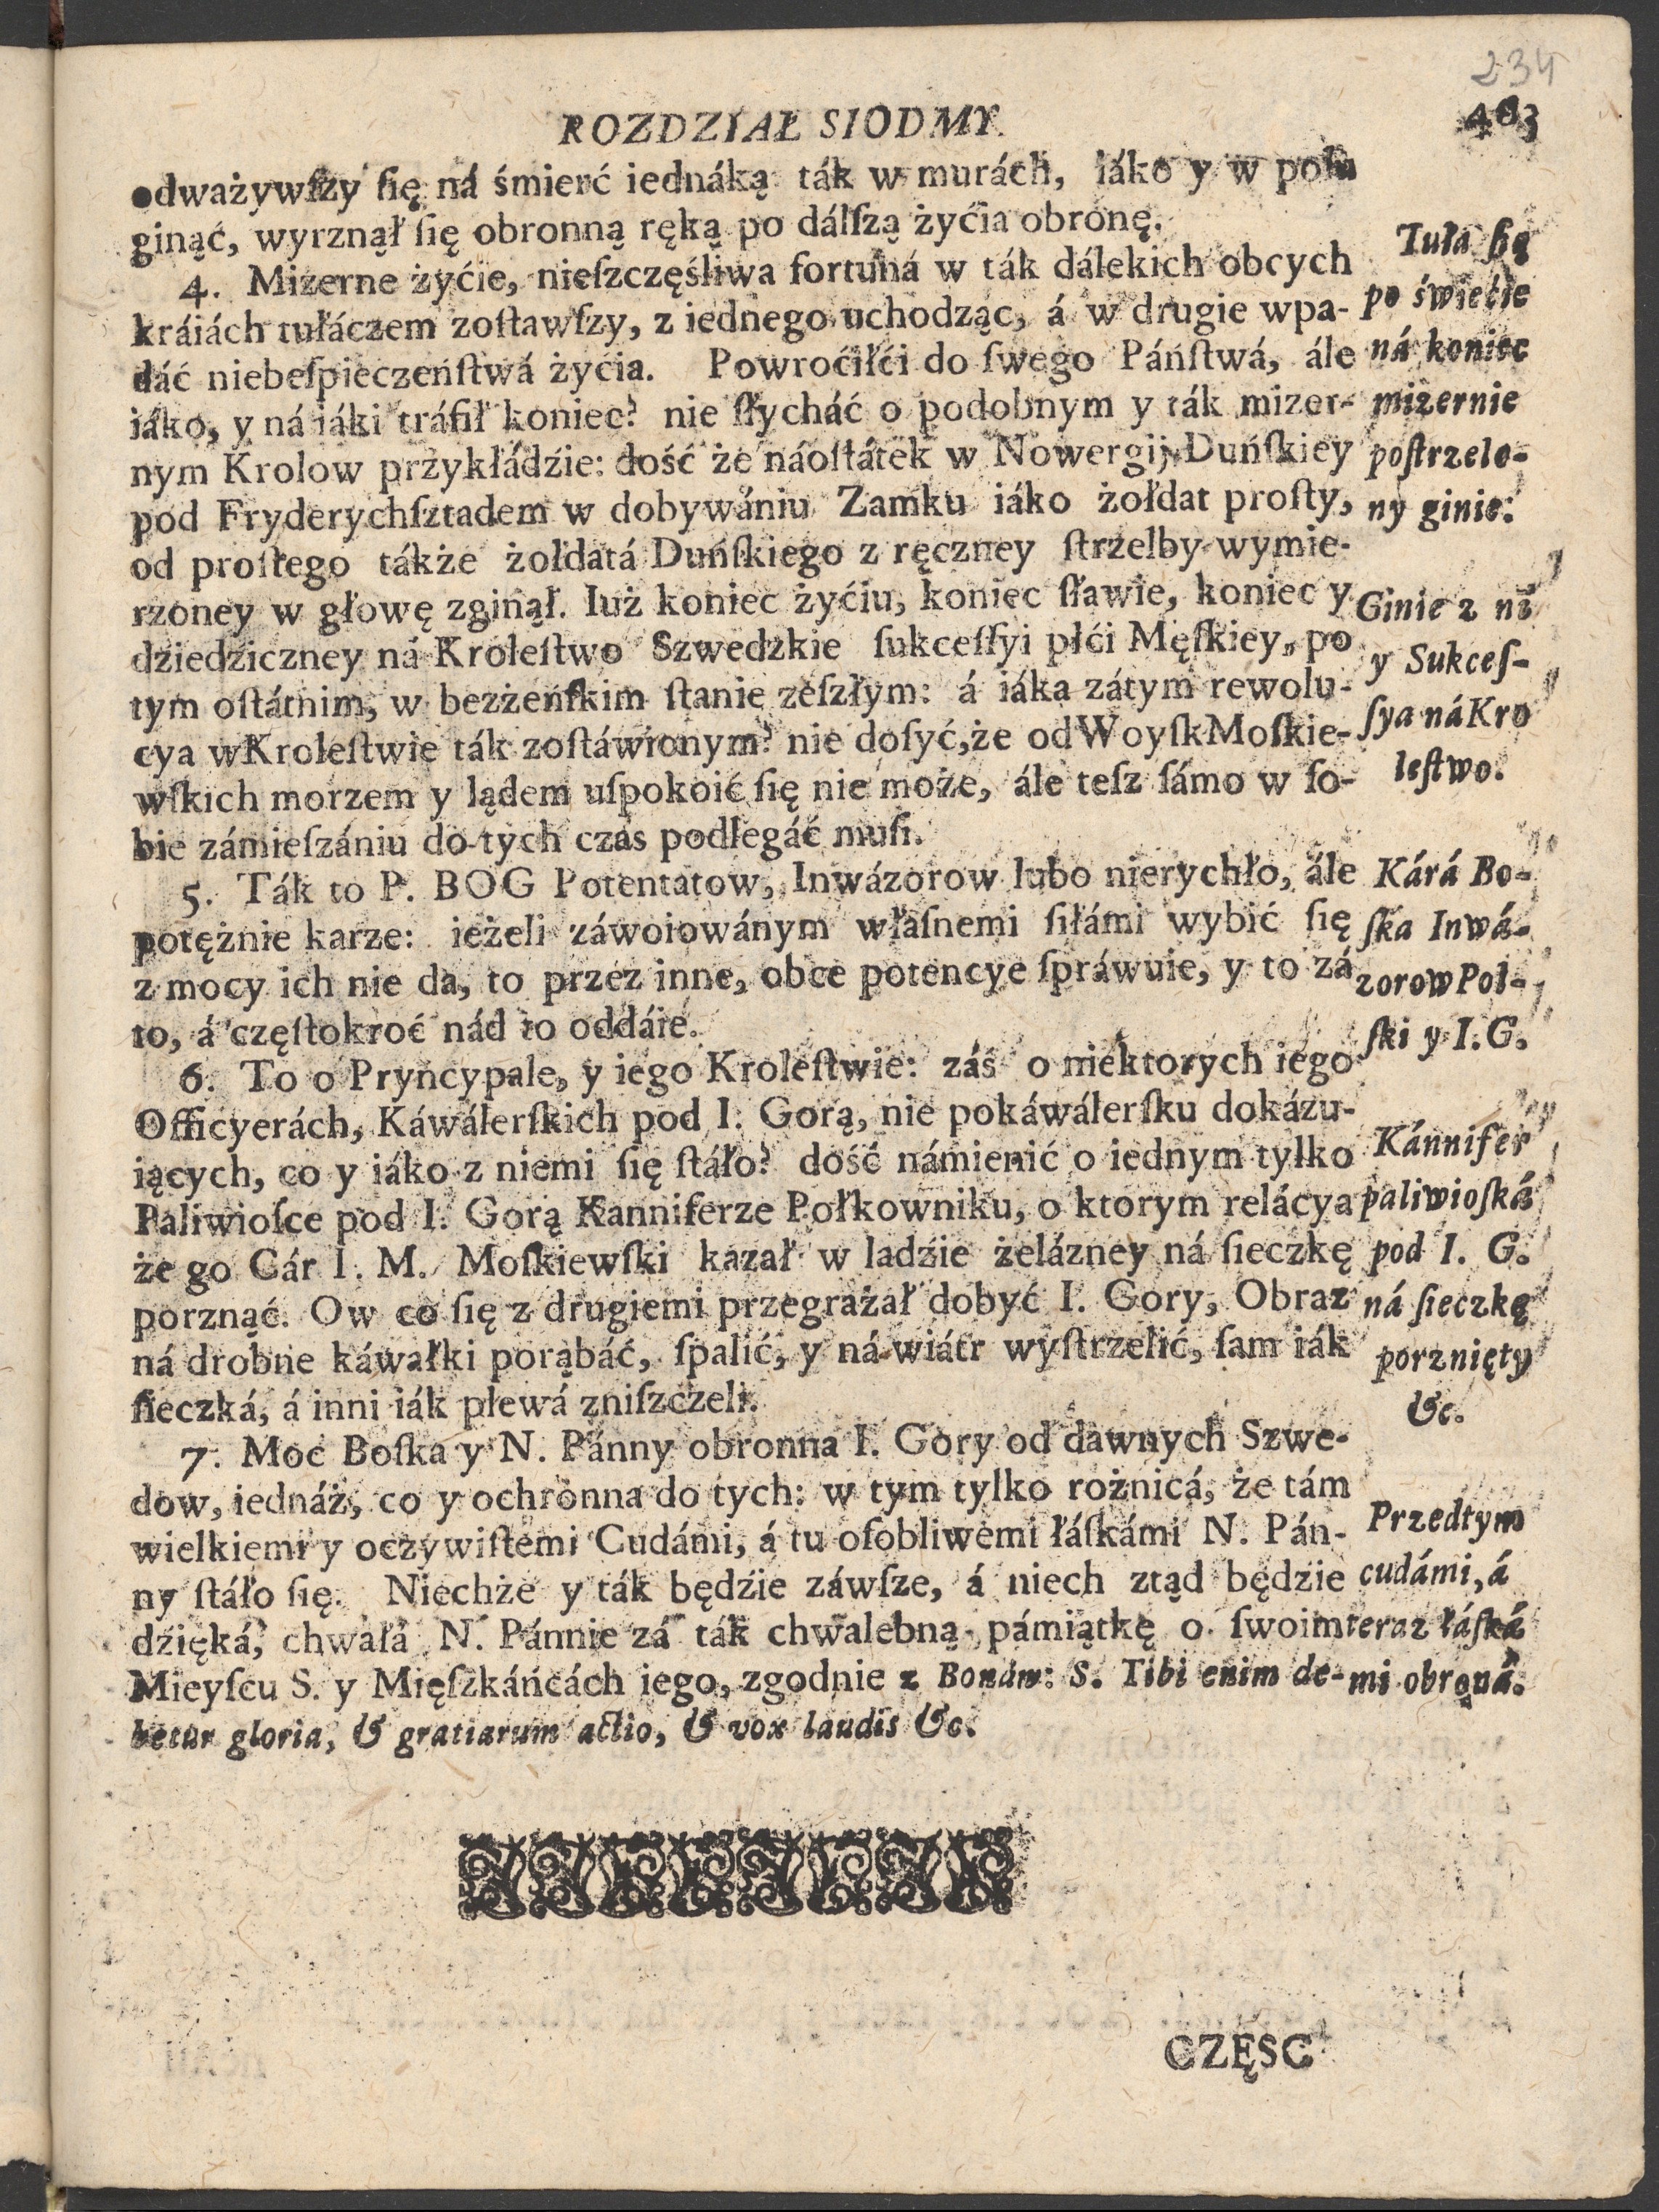 234
ROZDZIAŁ SIODMY
403
odważywſzy ſię ná śmierć iednáką ták w murách, iáko y w polu
ginąć, wyrznął ſię obronną ręką po dálſzą żyćia obronę.
4. Mizerne żyćie, nieſzczęśliwa fortuná w ták dálekich obcych
kráiách tułáczem zoſtawſzy, z iednego uchodząc, á w drugie wpa-
dáć niebeſpieczeńſtwá żyćia. Powroćiłći do ſwego Páńſtwá, ále
iáko, y ná iáki tráfił koniec? nie ſłycháć o podobnym y ták mizer-
nym Krolow przykłádźie: dość że náoſtátek w Nowergij Duńſkiey
pod Fryderychſztadem w dobywániu Zamku iáko żołdat proſty,
od proſtego tákże żołdatá Duńſkiego z ręczney ſtrzelby wymie-
rzoney w głowę zginął. Iuż koniec żyćiu, koniec ſławie, koniec y
dziedziczney ná Kroleſtwo Szwedzkie ſukceſſyi płći Męſkiey, po
tym oſtátnim, w bezżeńſkim ſtanie zeſzłym: á iáka zátym rewolu-
cya wKroleſtwie ták zoſtáwionym? nie doſyć,że odWoyſkMoſkie-
wſkich morzem y lądem uſpokoić ſię nie może, ále teſz ſámo w ſo-
bie zámieſzániu do tych czás podlegáć muſi.
5. Ták to P. BOG Potentatow, Inwázorow lubo nierychło, ále
potężnie karze: ieżeli záwoiowánym właſnemi ſiłámi wybić ſię
z mocy ich nie da, to przez inne, obce potencye ſpráwuie, y to zá
to, á częſtokroć nád to oddáie.
6. To o Pryncypale, y iego Kroleſtwie: záś o niektorych iego
Officyerách, Káwálerſkich pod I. Gorą, nie pokáwálerſku dokázu-
iących, co y iáko z niemi ſię ſtáło? dość námienić o iednym tylko
Paliwioſce pod I. Gorą Kanniferze Połkowniku, o ktorym relácya
że go Cár I. M. Moſkiewſki kazał w ladźie żelázney ná ſieczkę
porznąć. Ow co ſię z drugiemi przegrażał dobyć I. Gory, Obraz
ná drobne káwałki porąbáć, ſpalić, y ná wiátr wyſtrzelić, ſam iák
ſieczká, á inni iák plewá zniſzczeli.
7. Moc Boſka y N. Pánny obronna I. Gory od dawnych Szwe-
dow, iednáż, co y ochronna do tych: w tym tylko rożnicá, że tám
wielkiemi y oczywiſtemi Cudámi, á tu oſobliwemi łáſkámi N. Pán-
ny ſtáło ſię. Niechże y ták będźie záwſze, á niech ztąd będzie
dzięká, chwałá N. Pánnie zá ták chwalebną pámiątkę o ſwoim
Mieyſcu S. y Mięſzkáńcách iego, zgodnie z Bonáw: S. Tibi enim de-
betur gloria, & gratiarum actio, & vox laudis &c.
Tuła ſię
po świećie
ná koniec
mizernie
poſtrzelo-
ny ginie.
Ginie z nī
y Sukceſ-
ſya náKro
leſtwo.
Kárá Bo-
ſka Inwá-
zorow Pol-
ſki y I. G.
Kánnifer
paliwioſká
pod I. G.
ná ſieczkę
porznięty
&c.
Przedtym
cudámi, á
teraz łáſká
mi obroná.
CZĘSC